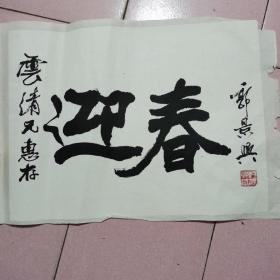 雲清兄惠存
迎春
景興